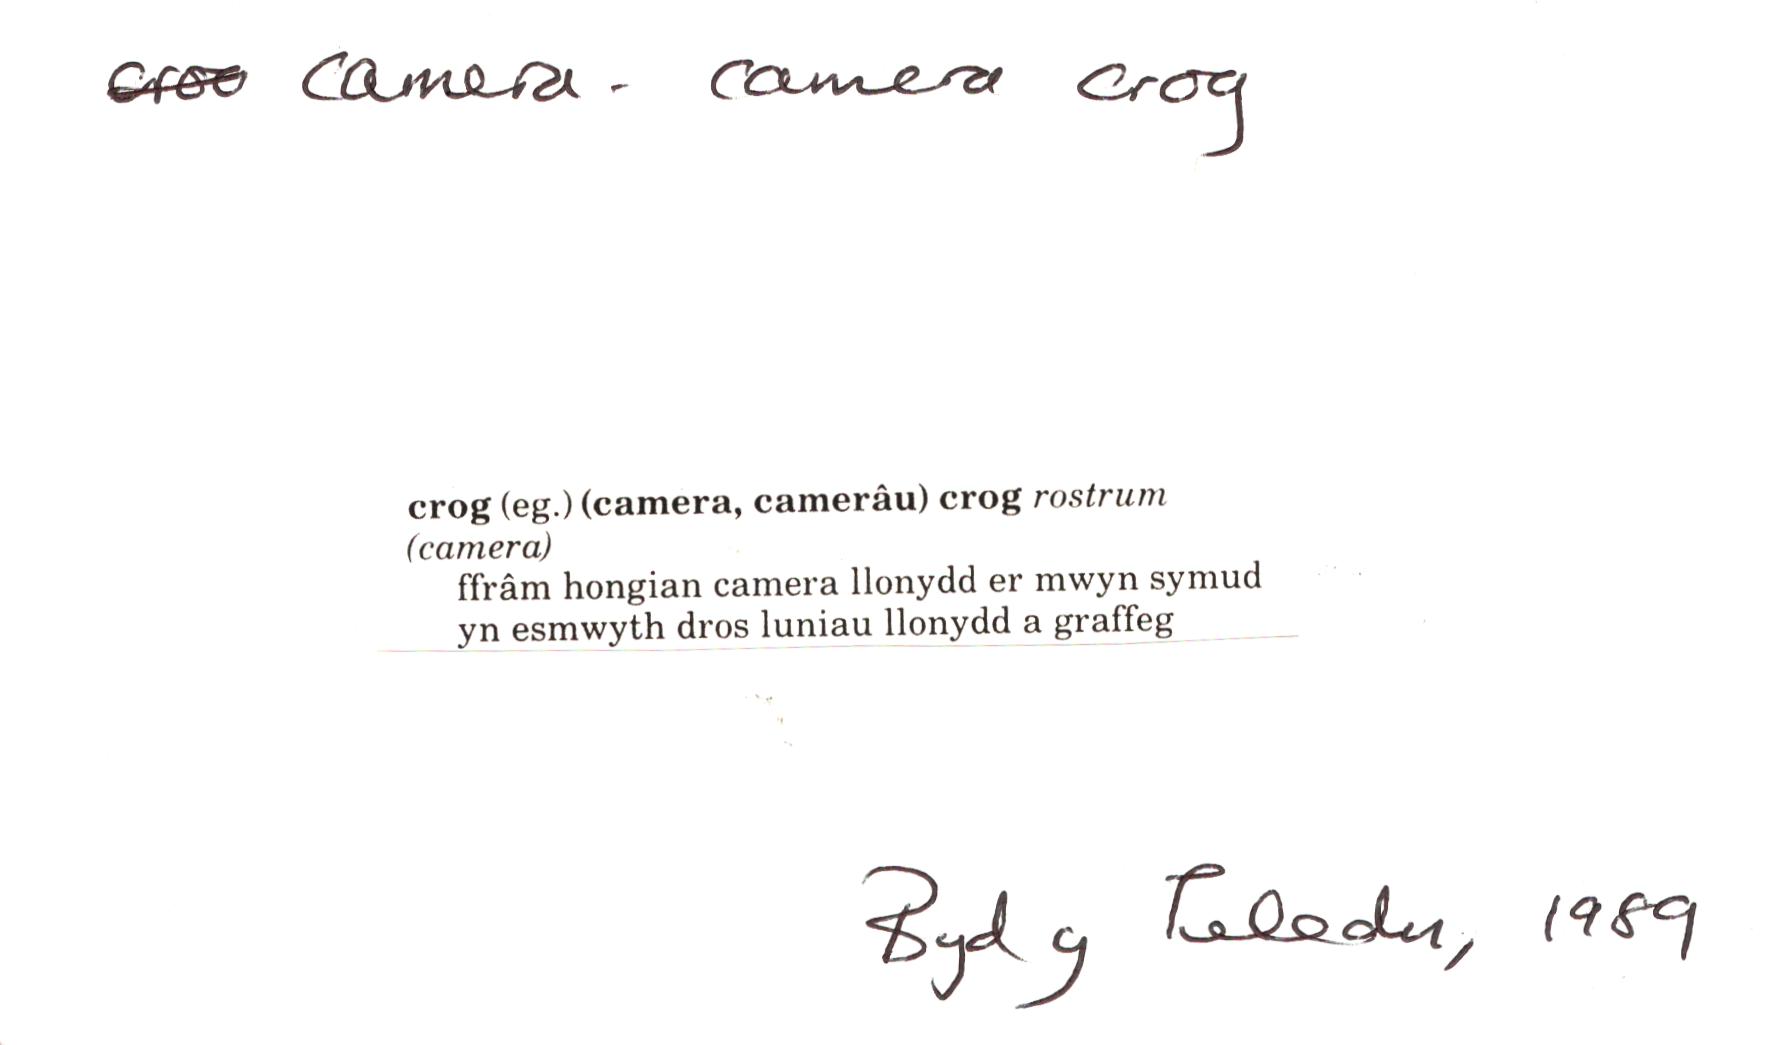 camera - camera crog
crog (eg.) (camera, camerâu) crog rostrum
(camera)
ffrâm hongian camera llonydd er mwyn symud
yn esmwyth dros luniau llonydd a graffeg
Byd y Teledu, 1989